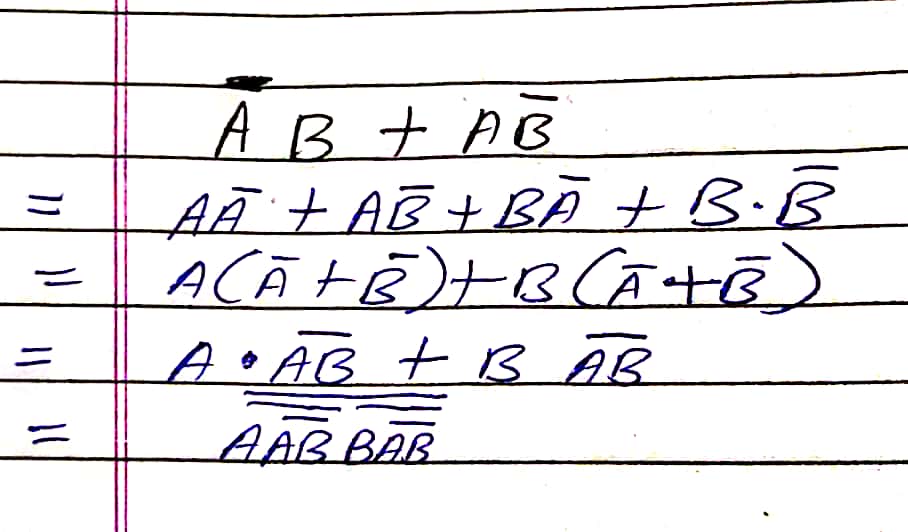 A̅ B + AB̅
= AA̅ + AB̅ + BA̅ + B·B̅
= A(A̅ + B̅) + B(A̅ + B̅)
= A · A̅B̅ + B A̅B̅
= A̿A̿B̿ B̿A̿B̿